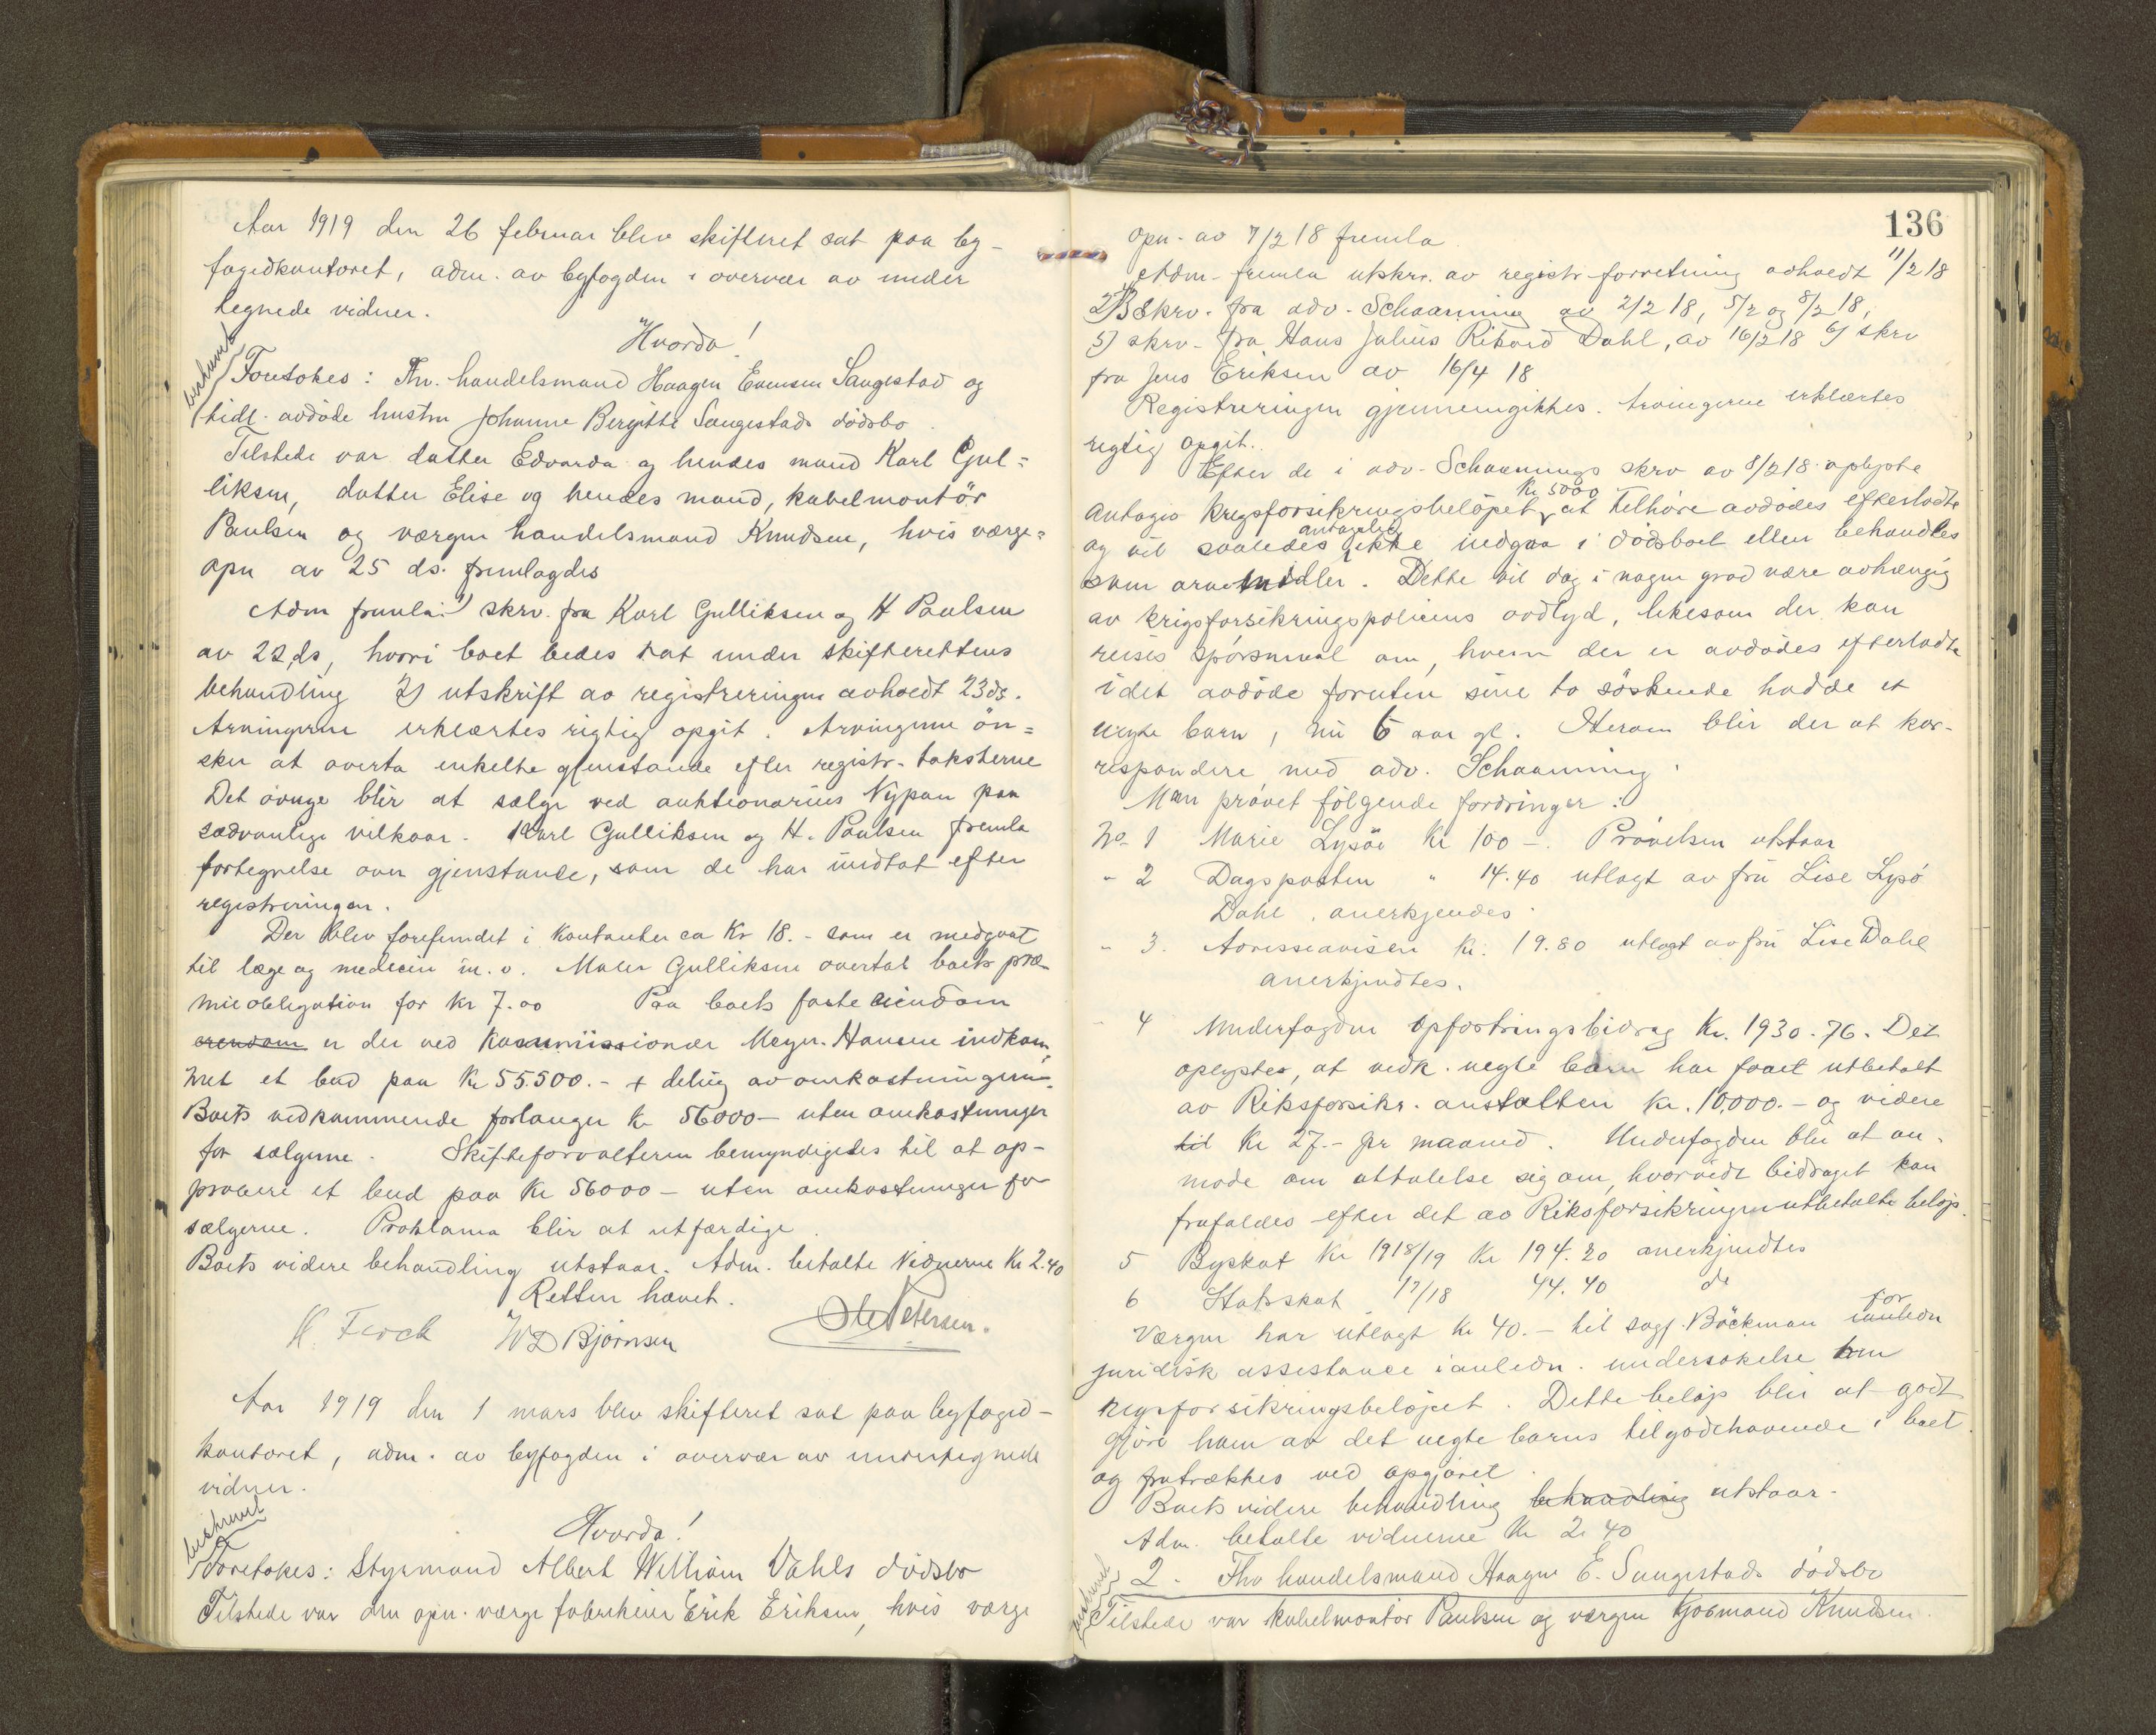 Aar 1919 den 26 februar blev skifteret sat paa by-
fogedkontoret, adm. av byfogden i overvær av under
tegnede vidner.
Hvorda!
beskrevet
Foretokes: Fhv. handelsmand Haagen Evensen Saugestad og
tidl. avdøde hustru Johanne Bergitte Saugestads dödsbo.
Tilstede var datter Edvarda og hendes mand Karl Gul=
liksen, datter Elise og hendes mand, kabelmontör
Paulsen og værgen handelsmand Knudsen, hvis værge=
opn av 25 ds. fremlagdes
Adm fremla: 1) skrv. fra Karl Gulliksen og H Paulsen
av 22 ds, hvori boet bedes tat under skifterettens
behandling 2) utskrift av registreringen avholdt 23 ds.
Arvingerne erklærtes rigtig opgit. Arvingerne ön=
sker at overta enkelte gjenstande efter registr. taksterne
Det övrige blir at sælge ved auktionarius Nypan paa
sedvanlige vilkaar. Karl Gulliksen og H. Paulsen fremla
fortegnelse over gjenstande, som de har indtat efter
registreringen.
Der blev forefundet i kontanter ca Kr 18.- som er medgaat
til læge og medicin m. v. Maler Gulliksen overtat boets præ-
mieobligation for kr 7.00 Paa boets faste eiendom
er der ved Kommissionær Meyer-Hansen indkom
met et bud paa Kr 55.500.- + deling av omkostningerne.
Boets vedkommende forlanger kr 56000- uten omkostninger
for sælgerne. Skifteforvalteren bemyndigedes til at ap-
probere et bud paa Kr 56000- uten omkostninger for
sælgerne. Proklama blir at utfærdige.
Boets videre behandling utstaar. Adm. betalte vidnerne Kr 2.40
Retten hævet.
H. Ferch W D Bjørnsen Ole Petersen.
Aar 1919 den 1 mars blev skifteret sat paa byfoged-
kontoret, adm. av byfogden i overvær av undertegnede
vidner.
Hvorda!
beskrevet
Foretokes: Styrmand Albert William Dahls dödsbo
Tilstede var den opn. værge fabrikeier Erik Eriksen, hvis værge
136
opn. av 7/2 18 fremla
Adm. fremla utskr. av registr. forretning avholdt 11/2 18
2) 3 skrv. fra adv. Schaanning av 2/2 18, 5/2 og 8/2 18,
5) skrv. fra Hans Julius Rikard Dahl, av 16/2 18 6) skrv
fra Jens Eriksen av 16/4 18
Registreringen gjennemgikkes. Arvingerne erklærtes
rigtig opgit.
Efter de i adv. Schaannings skrv av 8/2 18 oplyste
Kr 5000
antages krigsforsikringsbelöpet at tilhöre avdödes efterladte
antagelig
og vil saaledes ikke indgaa i dödsboet eller behandles
som arvemidler. Dette vil dog i nogen grad være avhængig
av krigsforsikringspolicens ordlyd, likesom der kan
reises spörsmaal om, hvem der er avdödes efterladte
idet avdöde foruten sine to söskende hadde et
uegte barn, nu 6 aar gl. Herom blir der at kor-
respondere med adv. Schaanning.
Man prövet fölgende fordringer:
No. 1 Marie Lysöe Kr 100-. Prövelsen utstaar
" 2 Dagsposten " 14.40 utlagt av fru Lise Lysö
Dahl, anerkjendes.
" 3. Adresseavisen kr. 19.80 utlagt av fru Lise Dahl
anerkjendtes.
" 4 Underfogden opfostringsbidrag Kr. 1930.76. Det
oplystes, at vedk. uegte barn har faaet utbetalt
av Riksforsikr. anstalten Kr. 10,000.- og videre
Kr 27.- pr maaned. Underfogden blir at an-
mode om uttalelse sig om, hvorvidt bidraget kan
frafaldes efter det av Riksforsikringen utbetalte belöp.
5 Byskat Kr 1918/19 Kr 194.20 anerkjendtes
6 Statsskat 17/18 44.40 do
for
Værgen har utlagt kr 40.- til sagf. Böckman ianledn
juridisk assistance ianledn. undersökelse om
krigsforsikringsbelöpet. Dette belöp blir at godt
gjöre ham av det uegte barns tilgodehavende i boet
og fratrækkes ved opgjöret.
Boets videre behandling behandling utstaar.
Adm. betalte vidnerne Kr 2.40
beskrevet
2. Fhv handelsmand Haagen E. Saugestads dödsbo
Tilstede var kabelmontör Paulsen og værgen Knudsen.